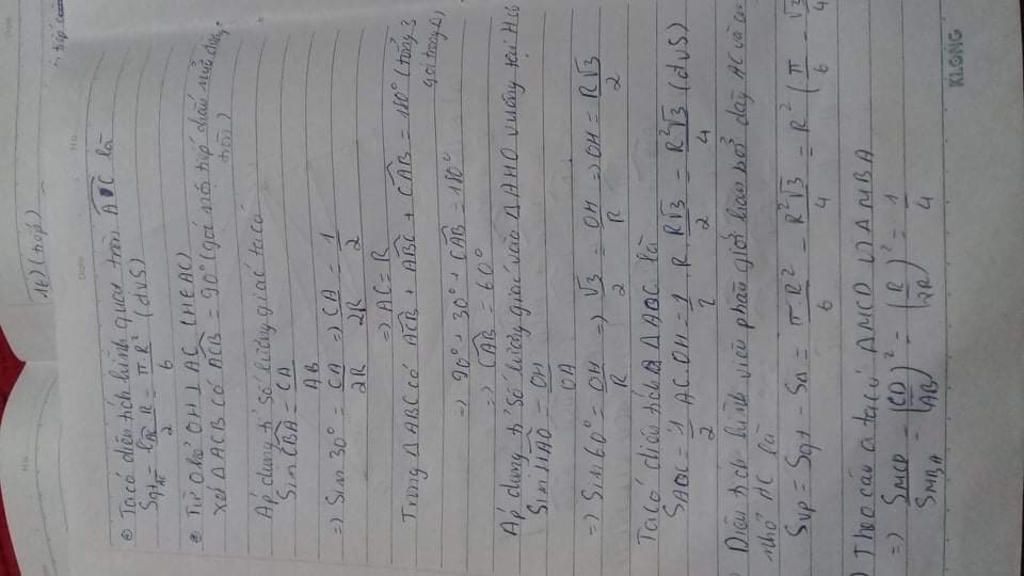 1b) (tiếp)
Ta có diện tích hình quạt tròn AOC là
Sqt = lR/2 = πR²/6 (đvS)
Từ O kẻ OH ⊥ AC (H ∈ AC)
xét ΔACB có ACB = 90° (góc nội tiếp chắn nửa đường
tròn)
Áp dụng tỉ số lượng giác ta có
Sin CBA = CA/AB
=> Sin 30° = CA/2R => CA/2R = 1/2
=> AC = R
Trong ΔABC có ACB + ABC + CAB = 180° (tổng 3
gói trong Δ)
=> 90° + 30° + CAB = 180°
=> CAB = 60°
Áp dụng tỉ số lượng giác vào ΔAHO vuông tại H có
Sin HAO = OH/OA
=> Sin 60° = OH/R => √3/2 = OH/R => OH = R√3/2
Ta có diện tích Δ AOC là
SAOC = 1/2 AC.OH = 1/2 R R√3/2 = R²√3/4 (đvS)
Diện tích hình viên phân giới hạn bởi dây AC và
nhỏ AC là
Svp = Sqt - SΔ = πR²/6 - R²√3/4 = R² (π/6 - √3/4
) Theo câu a ta có ΔMCD ∽ ΔMBA
=> SMCD/SMBA = (CD/AB)² = (R/2R)² = 1/4
KLONG